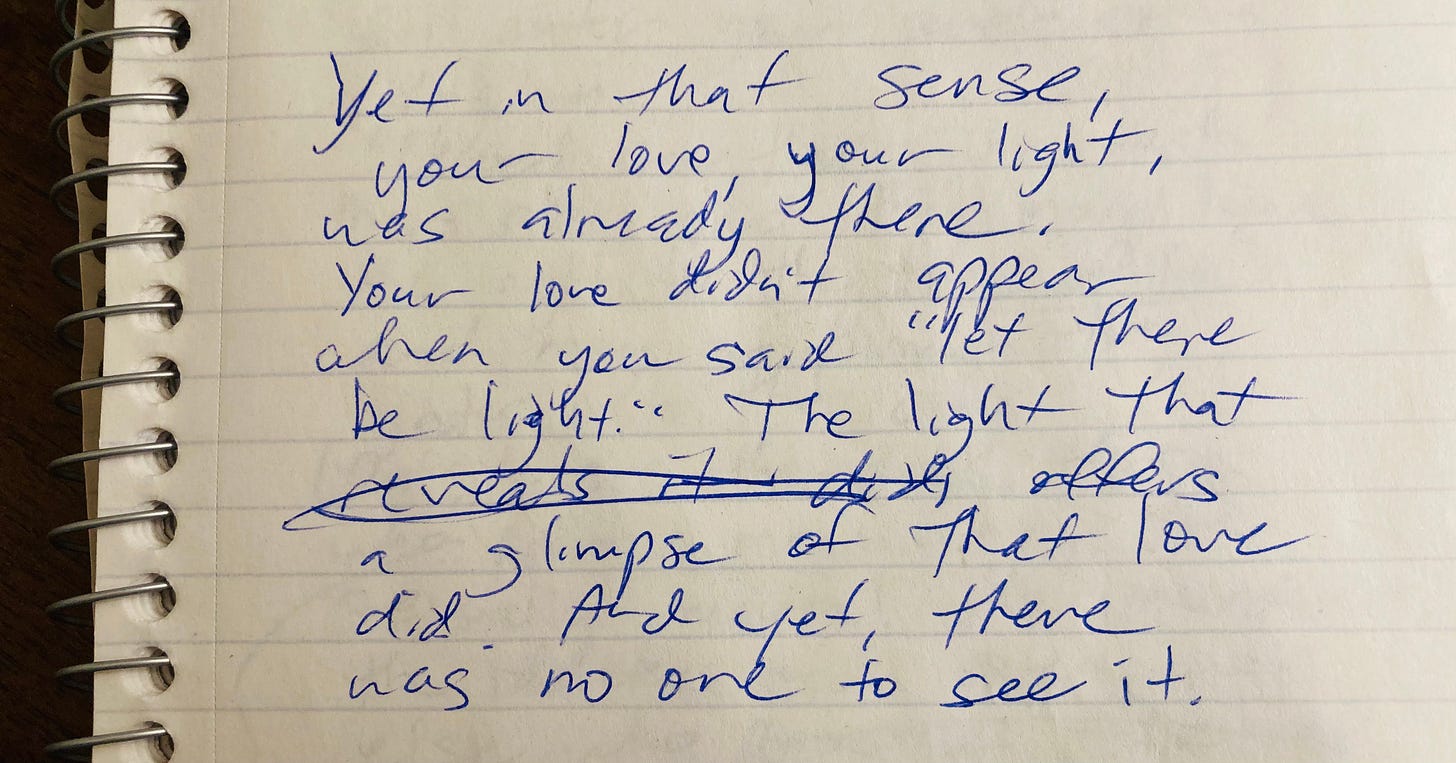 Yet in that sense,
your love, your light,
was already there.
Your love didn't appear
when you said "let there
be light." The light that
reveals it did, offers
a glimpse of that love
did. And yet, there
was no one to see it.